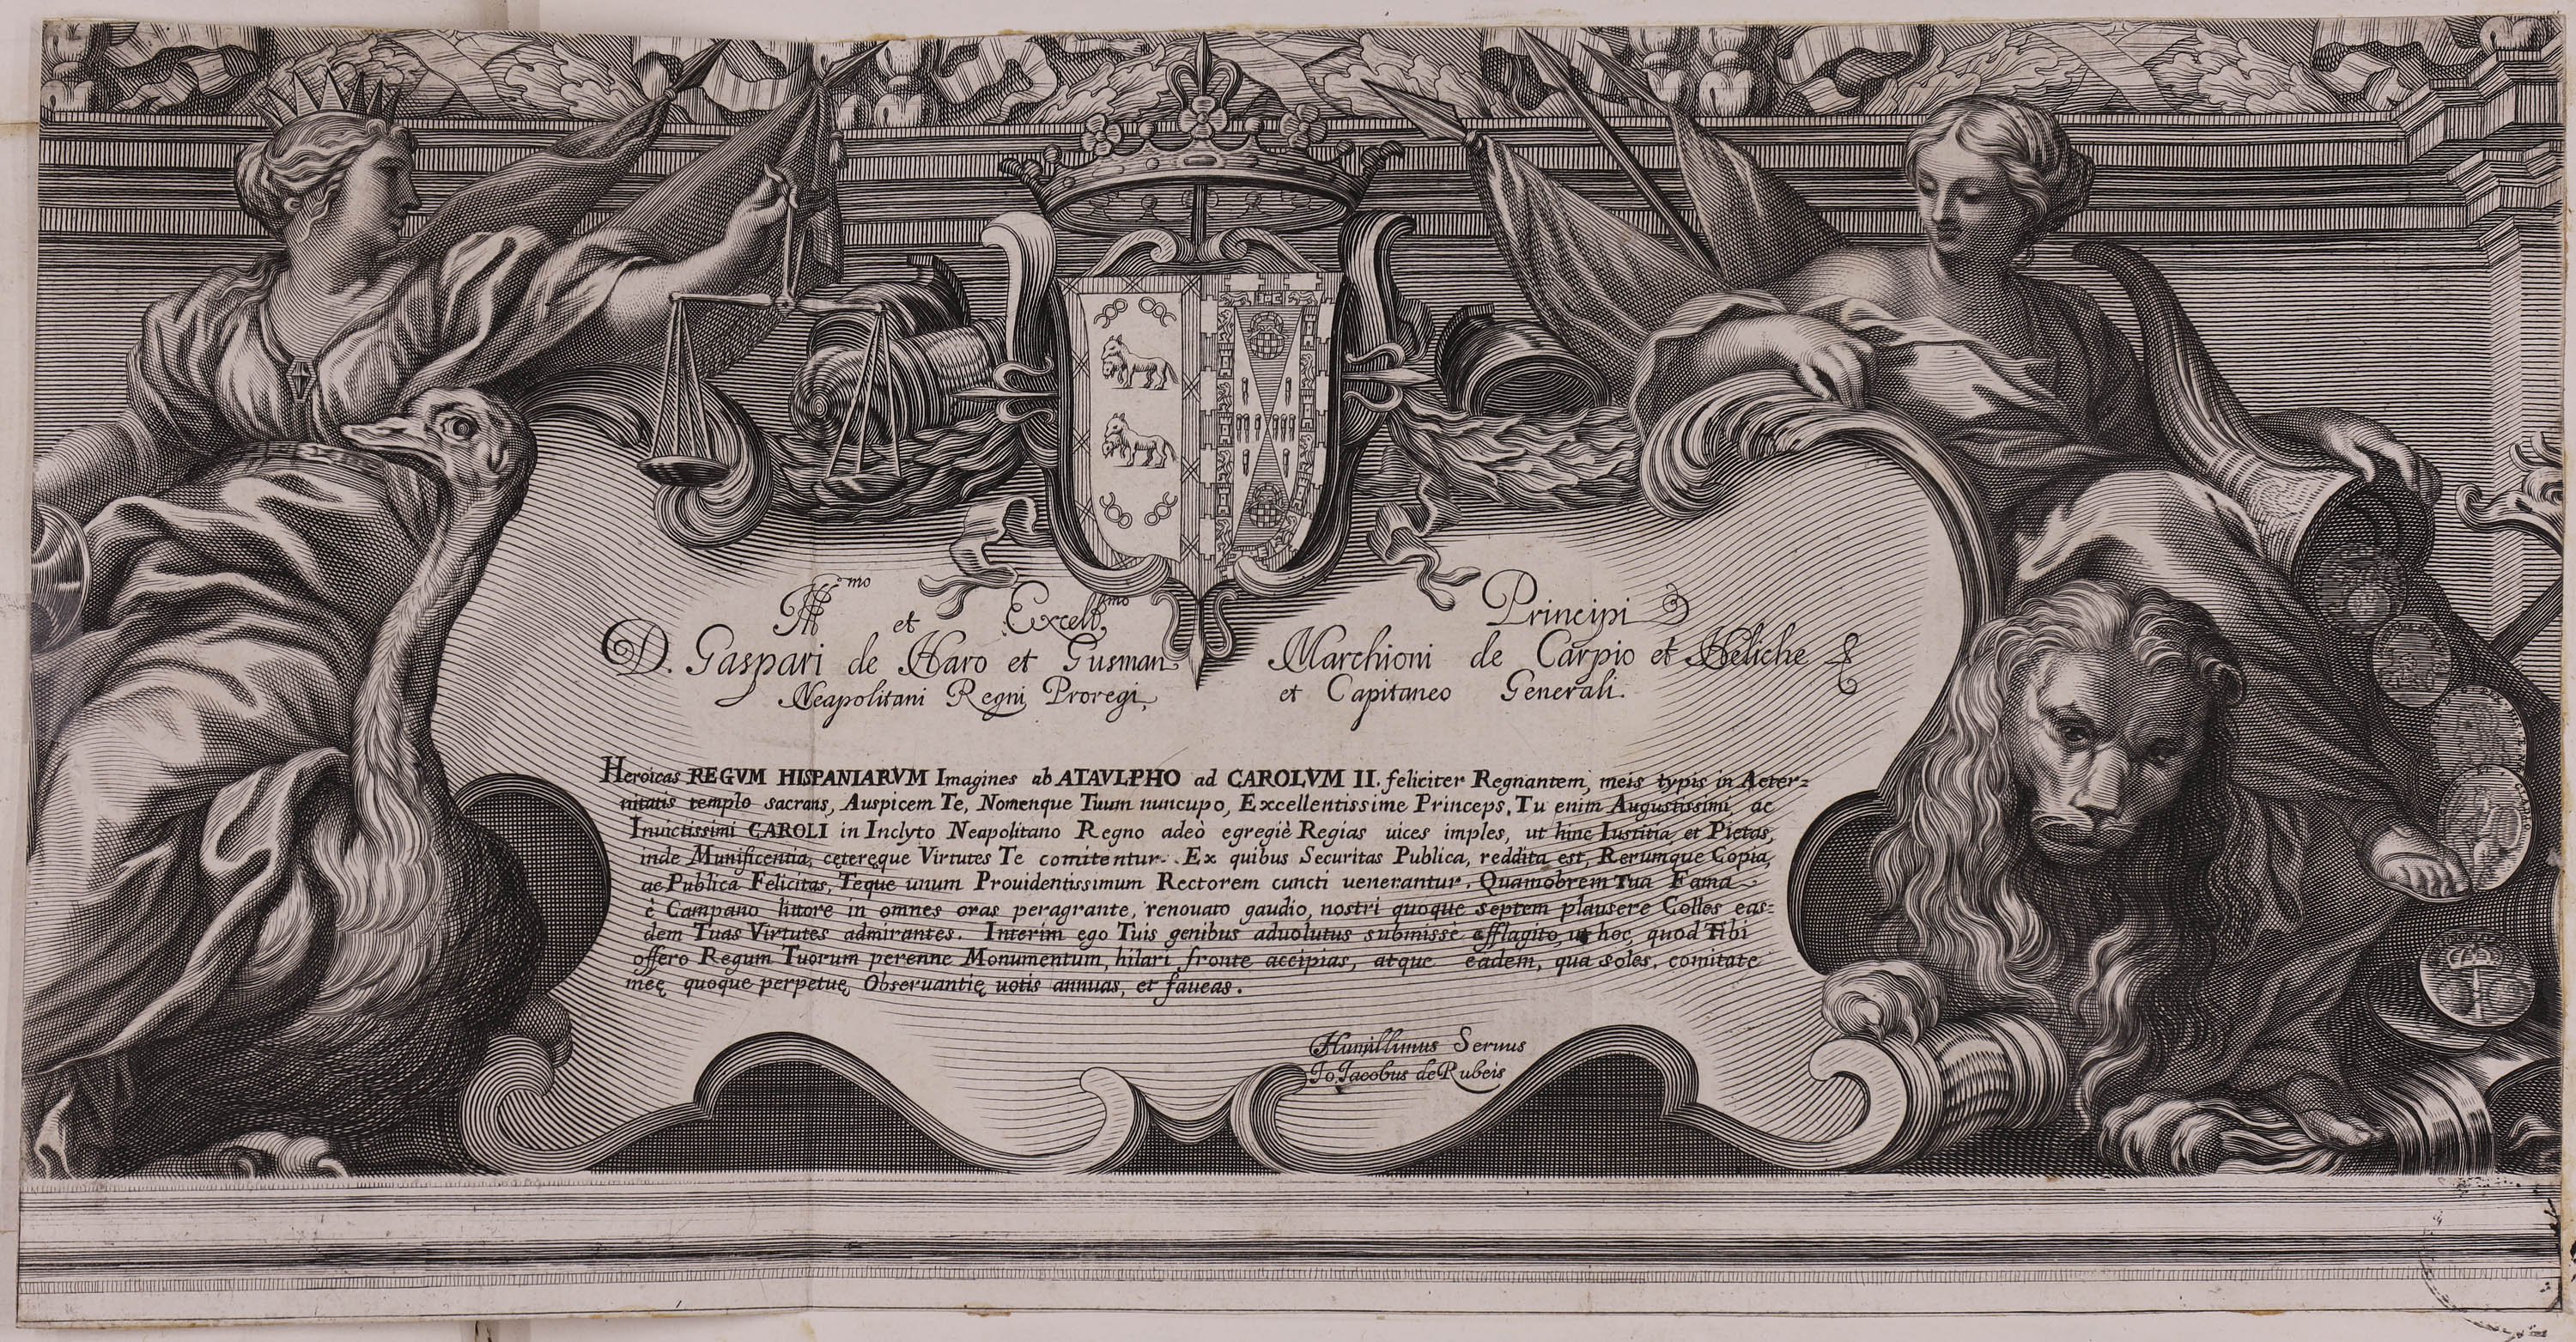 Ill.mo et Excell.mo Principi
D. Gaspari de Haro et Gusman Marchioni de Carpio et Heliche &
Neapolitani Regni Proregi, et Capitaneo Generali.
Heroicas REGVM HISPANIARVM Imagines ab ATAVLPHO ad CAROLVM II. feliciter Regnantem, meis typis in Aeter=
nitatis templo sacrans, Auspicem Te, Nomenque Tuum nuncupo, Excellentissime Princeps, Tu enim Augustissimi ac
Inuictissimi CAROLI in Inclyto Neapolitano Regno adeò egregiè Regias uices imples, ut hinc Iustitia, et Pietas,
inde Munificentia, cęteręque Virtutes Te comitentur. Ex quibus Securitas Publica, reddita est, Rerumque Copia,
ac Publica Felicitas, Teque unum Prouidentissimum Rectorem cuncti uenerantur. Quamobrem Tua Fama
è Campano littore in omnes oras peragrante, renouato gaudio, nostri quoque septem plausere Colles eas=
dem Tuas Virtutes admirantes. Interim ego Tuis genibus aduolutus submisse efflagito, ut hoc, quod Tibi
offero Regum Tuorum perenne Monumentum, hilari fronte accipias, atque eadem, qua soles, comitate
meę quoque perpetuę Obseruantię uotis annuas, et faueas.
Humillimus Seruus
Io. Iacobus de Rubeis